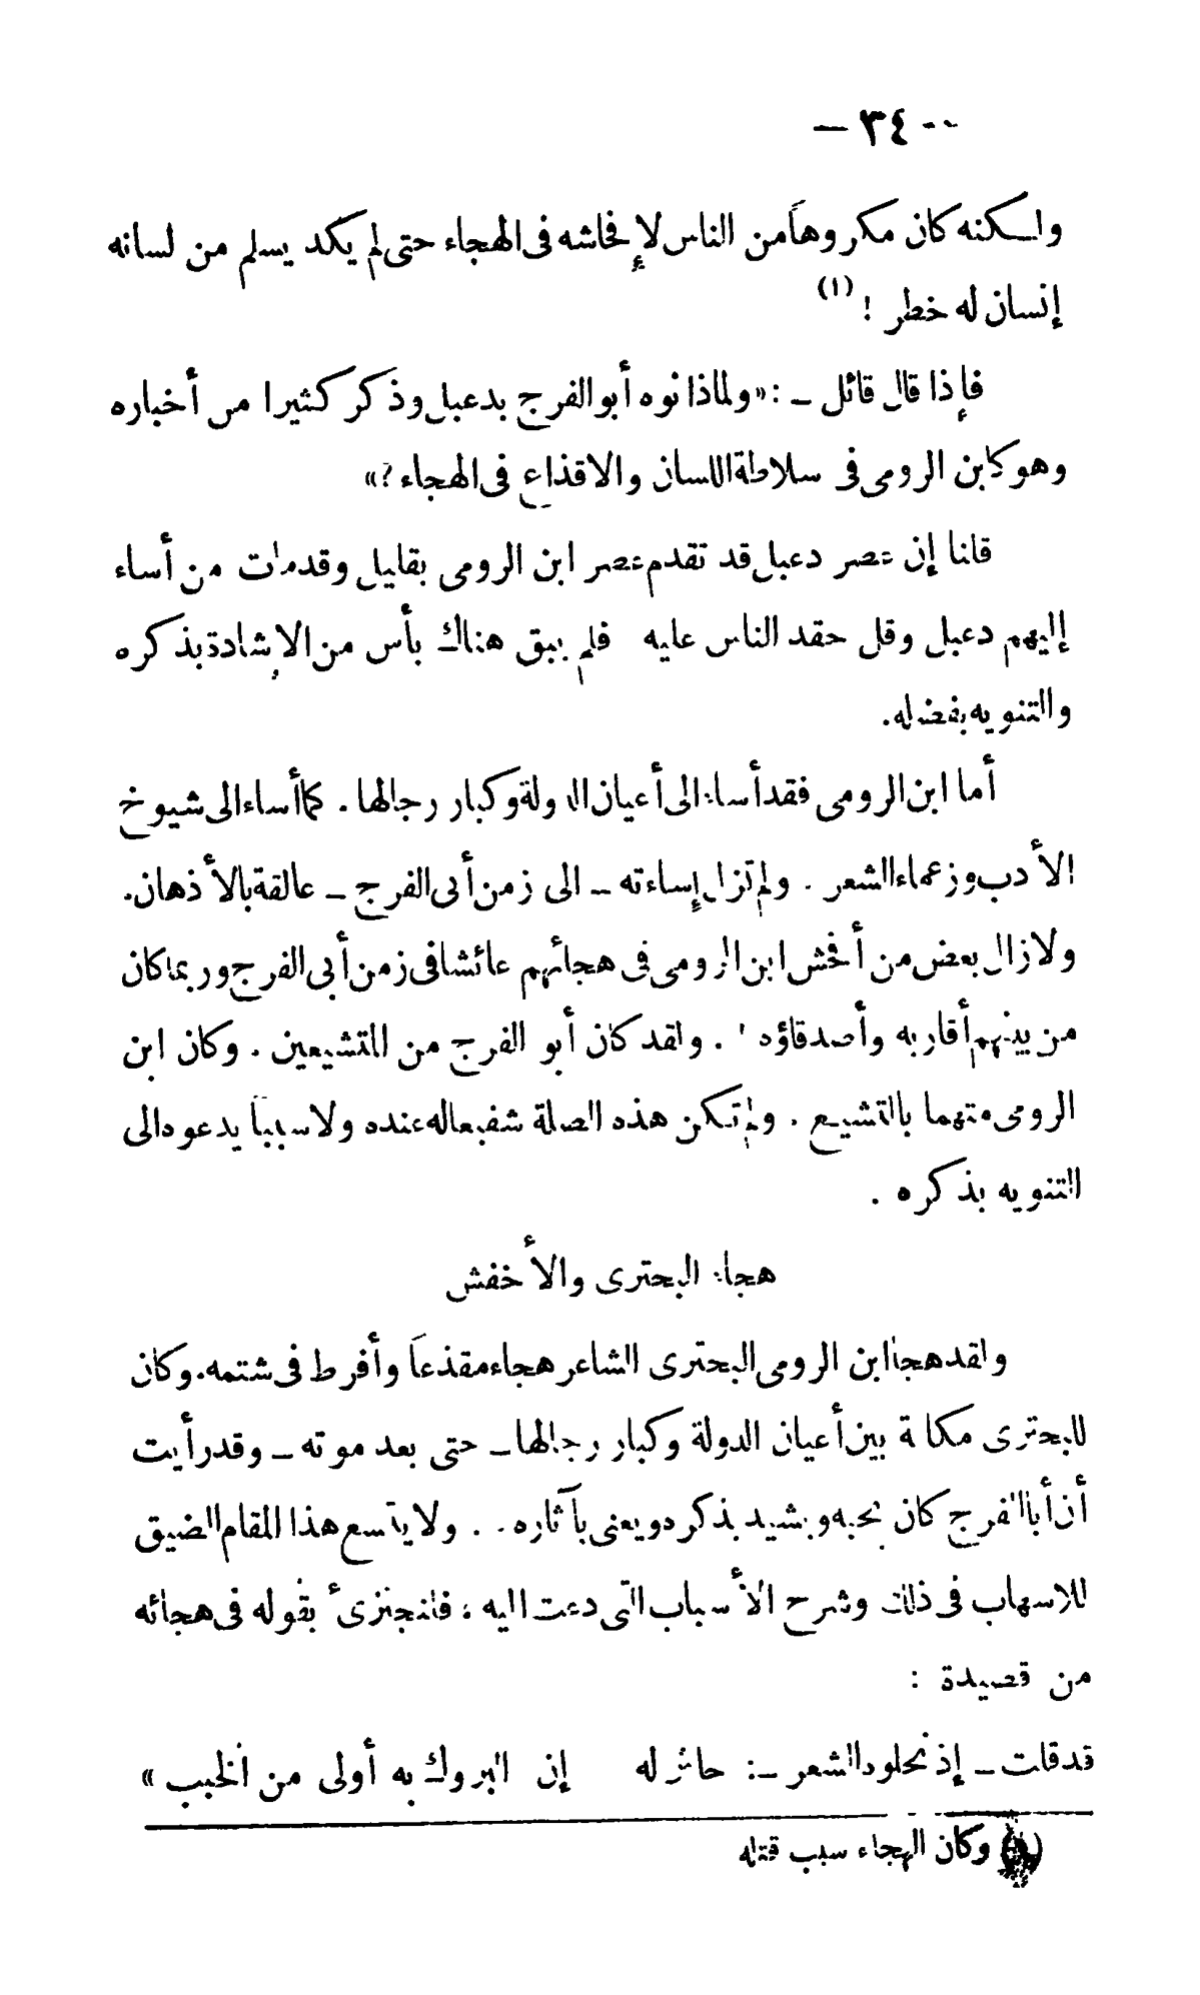 — ٣٤ —
ولكنه كان مكروهاً من الناس لإفحاشه فى الهجاء حتى لم يكد يسلم من لسانه
إنسان له خطر ! (١)
فإذا قال قائل ـ : «ولماذا نوه أبو الفرج بدعبل وذكر كثيرا من أخباره
وهو كابن الرومى فى سلاطة اللسان والاقذاع فى الهجاء ؟»
قلنا إن عصر دعبل قد تقدم عصر ابن الرومى بقليل وقد مات من أساء
إليهم دعبل وقل حقد الناس عليه فلم يبق هناك بأس من الإشادة بذكره
والتنويه بفضله.
أما ابن الرومى فقد أساء الى أعيان الدولة وكبار رجالها . كما أساء الى شيوخ
الأدب وزعماء الشعر . ولم تزل إساءته ـ الى زمن أبى الفرج ـ عالقة بالأذهان.
ولا زال بعض من أفحش ابن الرومى فى هجائهم عائشا فى زمن أبى الفرج وربما كان
من بينهم أقاربه وأصدقاؤه ! . ولقد كان أبو الفرج من المتشيعين . وكان ابن
الرومى متهما بالتشيع . ولم تكن هذه الصلة شفيعا له عنده ولا سبباً يدعوه الى
التنويه بذكره .
هجاء البحترى والأخفش
ولقد هجا ابن الرومى البحترى الشاعر هجاء مقذعاً وأفرط فى شتمه. وكان
للبحترى مكانة بين أعيان الدولة وكبار رجالها ـ حتى بعد موته ـ وقد رأيت
أن أبا الفرج كان يحبه ويشيد بذكره ويعنى بآثاره . . ولا يتسع هذا المقام الضيق
للاسهاب فى ذلك وشرح الأسباب التى دعت اليه ، فلنجتزىء بقوله فى هجائه
من قصيدة :
قد قلت ـ إذ نحلوه الشعر ـ : حاش له إن البروك به أولى من الخبب »
(١) وكان الهجاء سبب قتله